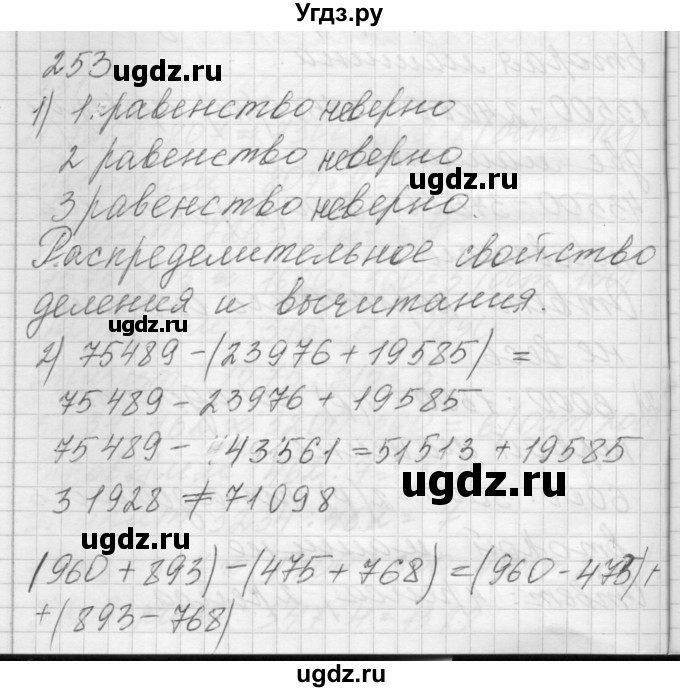 Угдз.ру
253
1) 1. равенство неверно
2 равенство неверно
ugdz.ru
3 равенство неверно.
Распределительное свойство
деления и вычитания.
ugdz.ru
2) 75489 - (23976 + 19585) =
75489 - 23976 + 19585
75489 - 43561 = 51513 + 19585
ugdz.ru
31928 ≠ 71098
ugdz.ru
(960 + 893) - (475 + 768) = (960 - 475) +
+ (893 - 768)
ugdz.ru